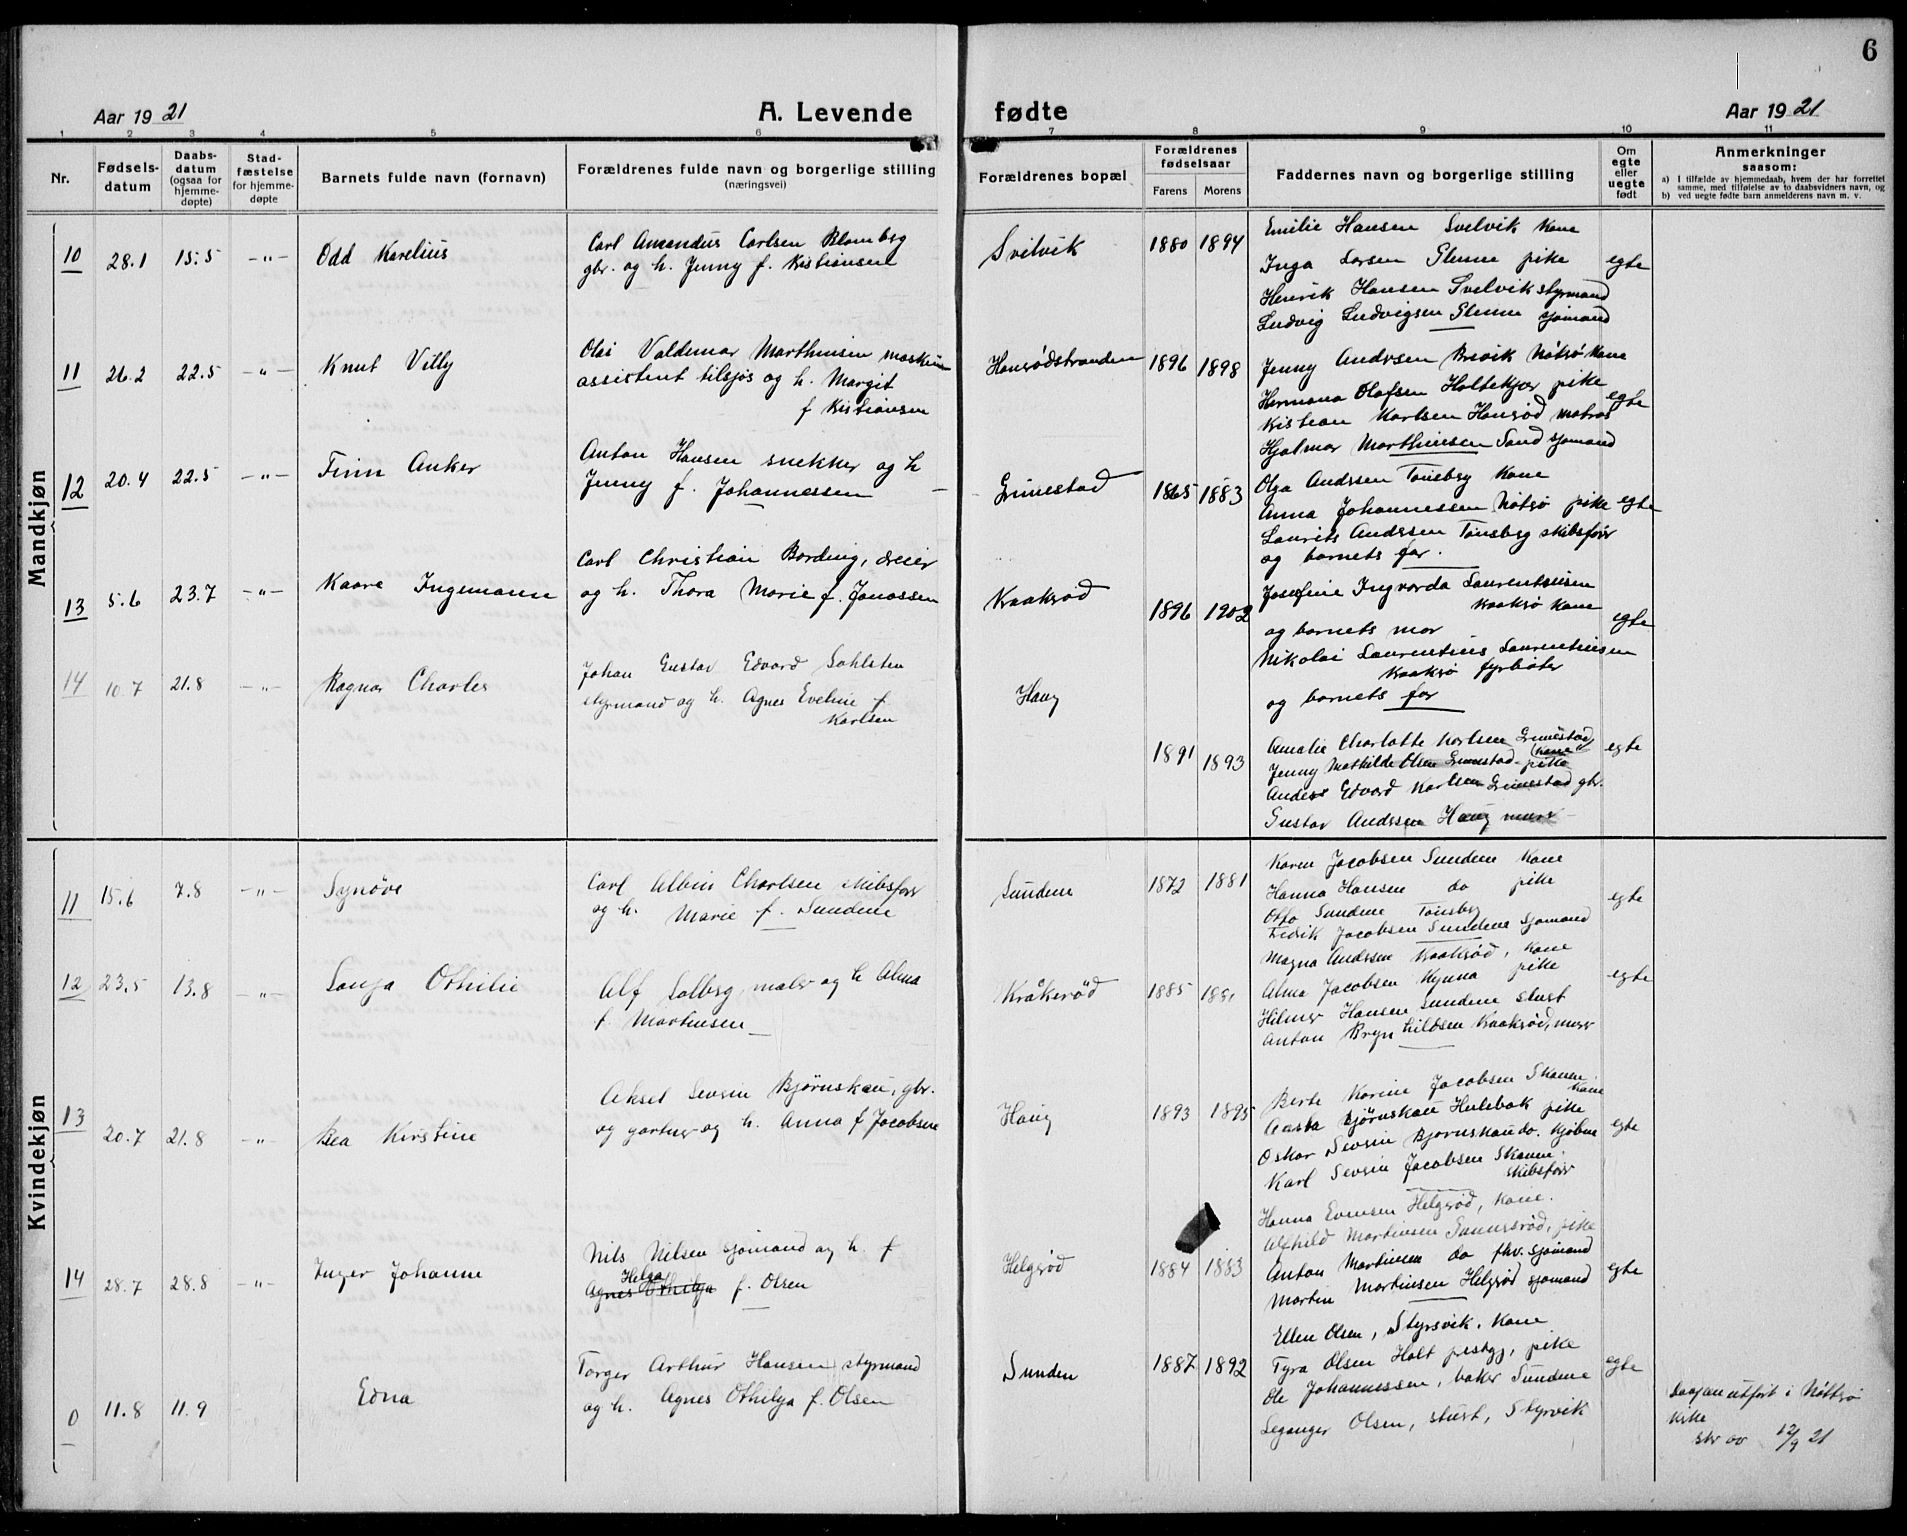 6
Aar 1921
A. Levende
fødte
Aar 1921
1 2 3 4 5 6 7 8 9 10 11
Nr.
Fødsels-
datum
Daabs-
datum
(ogsaa for
hjemme-
døpte)
Stad-
fæstelse
for hjemme-
døpte
Barnets fulde navn (fornavn)
Forældrenes fulde navn og borgerlige stilling
(næringsvei)
Forældrenes bopæl
Forældrenes
fødselsaar
Farens Morens
Faddernes navn og borgerlige stilling
Om
egte
eller
uegte
født
Anmerkninger
saasom:
a) I tilfælde av hjemmedaab, hvem der har forrettet
samme, med tilføielse av to daabsvidners navn, og
b) ved uegte fødte barn anmelderens navn m. v.
Mandkjøn
10 28.1 15.5 -„- Odd Karelius
Carl Amandus Carlsen Blomberg
gbr. og h. Jenny f. Kristiansen
Svelvik 1880 1894
Emilie Hansen Svelvik kone
Inga Larsen Glenne pike
Henrik Hansen Svelvik styrmand
Ludvig Ludvigsen Glenne sjømand
egte
11 26.2 22.5 -„- Knut Villy
Olai Valdemar Marthinsen maskin
assistent tilsjøs og h. Margit
f Kristiansen
Hansrødstranden 1896 1898
Jenny Andersen Brevik Nøtrø kone
Hermana Olafsen Holtekjær pike
Kristian Karlsen Hansrød matros
Hjalmar Marthinsen Sand sjømand
egte
12 20.4 22.5 -„- Finn Anker
Anton Hansen snekker og h
Jenny f. Johannessen
Grimestad 1865 1883
Olga Andersen Tønsberg kone
Anna Johannessen Nøtrø pike
Laurits Andersen Tønsberg skibsfører
og barnets far.
egte
13 5.6 23.7 -„- Kaare Ingemann
Carl Christian Bording, dreier
og h. Thora Marie f. Jonassen
Kraakrød 1896 1902
Josefine Ingvarda Laurentsusen
Kraakrø kone
og barnets mor
Nikolai Laurentius Laurentiusen
Kraakrø fyrbøter
og barnets far
egte
14 10.7 21.8 -„- Ragnar Charles
Johan Gustav Edvard Sahlsten
styrmand og h. Agnes Eveline f
Karlsen
Haug
1891 1893
Amalie Charlotte Karlsen Grimestad
kone
Jenny Mathilde Olsen Grimestad - pike
Anders Edvard Karlsen Grimestad gbr.
Gustav Andersen Haug murer
egte
Kvindekjøn
11 15.6 7.8 -„- Synøve
Carl Albin Charlsen skibsfører
og h. Marie f. Sundene
Sundene 1872 1881
Karen Jacobsen Sundene kone
Hanna Hansen do pike
Otto Sundene Tønsberg
Fredrik Jacobsen Sundene sjømand
egte
12 23.5 13.8 -„- Sonja Othilie
Alf Solberg, maler og h Alma
f. Martinsen
Kråkerød 1885
Magna Andersen Kraakrød, kone
Alma Jacobsen Kynna pike
Hilmer Hansen Sundene stuert
Anton Bryn Kraakrød, murer
egte
13 20.7 21.8 -„- Bea Kirstine
Aksel Severin Bjørnskau, gbr.
og gartner og h. Anna f Jacobsen
Haug 1893 1895
Berte Karine Jacobsen Skauen
kone
Aasta Bjørnskau Hulebak pike
Oskar Severin Bjørnskau do. kjøbm
Karl Severin Jacobsen Skauen
skibsfører
egte
14 28.7 28.8 -„- Inger Johanne
Nils Nilsen sjømand og h. f
Helga
Agnes Othilya f. Olsen
Helgerød 1884 1883
Hanna Evensen Helgerød, kone.
Alfhild Martinsen pike
Anton Martinsen do fhv. sjømand
Martin Martinsen Helgerød sjømand
egte
0 11.8 11.9 Edna
Torger Arthur Hansen styrmand
og h. Agnes Othilya f. Olsen
Sunden 1887 1892
Ellen Olsen, Styrsvik, kone
Tyra Olsen Holt prestgj, pike
Ole Johannessen, baker Sundene
Leganger Olsen, stuert, Styrvik
egte
Daapen utført i Nøtterø
kirke
skr av 12/9 21